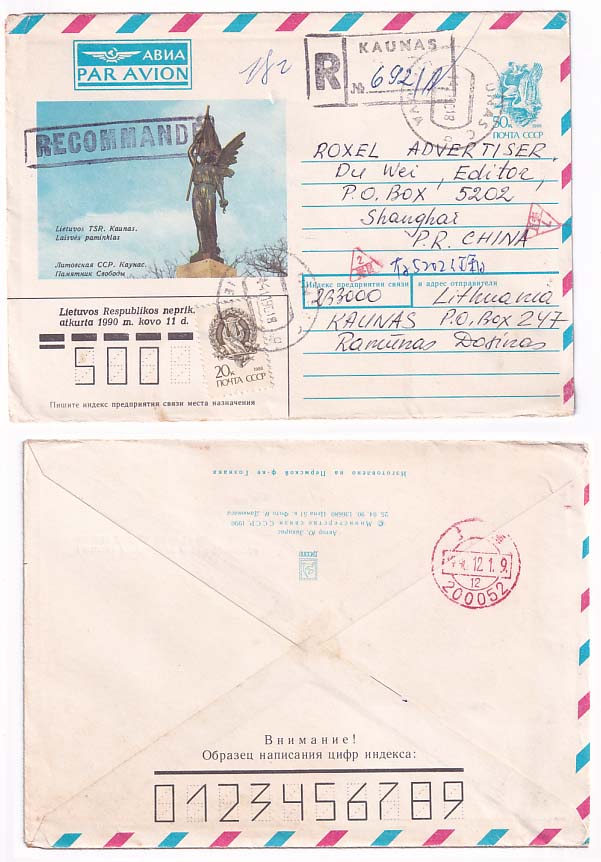 АВИА
PAR AVION
18г
R
KAUNAS
№ 692/
RECOMMANDÉ
50к
1988
ПОЧТА СССР
Lietuvos TSR. Kaunas.
Laisvės paminklas
Литовская ССР. Каунас.
Памятник Свободы
ROXEL ADVERTISER,
Du Wei, Editor,
P.O. BOX 5202
Shanghai
P.R. CHINA
Индекс предприятия связи и адрес отправителя
233000
Lithuania
KAUNAS P.O. Box 247
Ramūnas Dosinas
Lietuvos Respublikos neprik.
atkurta 1990 m. kovo 11 d.
20к
1988
ПОЧТА СССР
500
Пишите индекс предприятия связи места назначения
Изготовлено на Пермской ф-ке Гознака
25.04.90.
© Министерство связи СССР. 1990
12.1.9.
12
200052
Внимание!
Образец написания цифр индекса:
0123456789